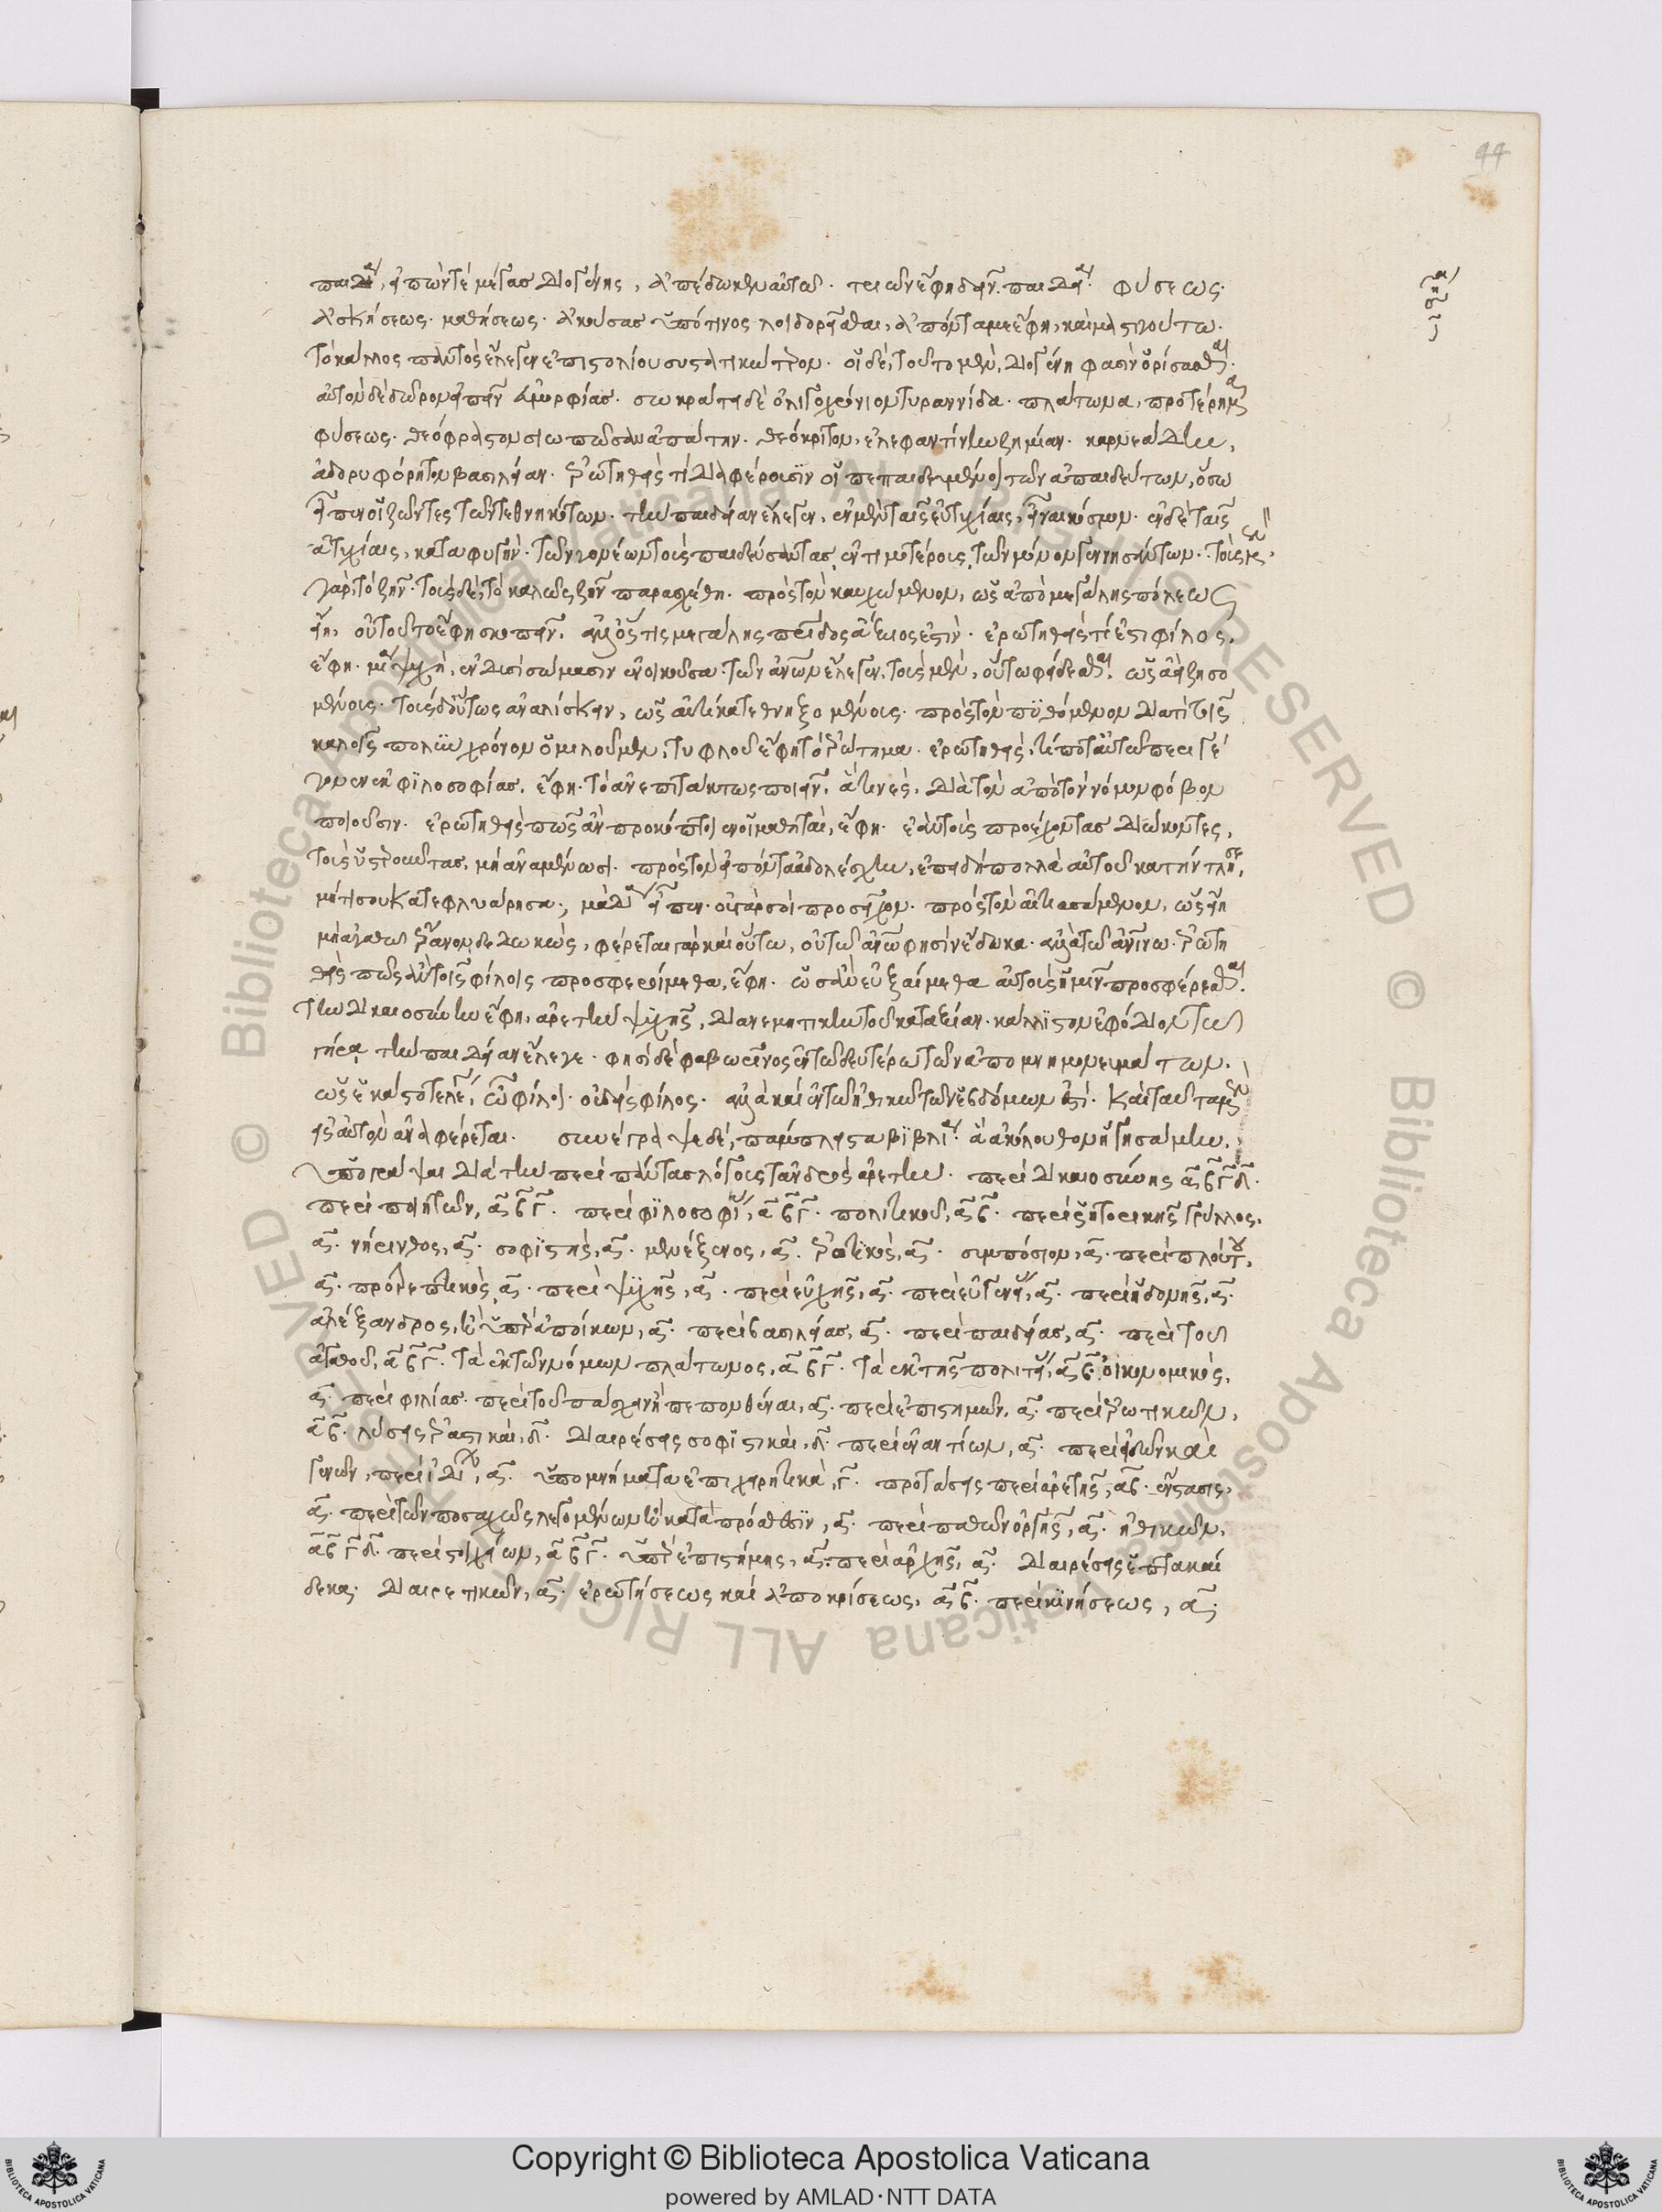 44
παιδεί, εἰπών τε μέγας Διογένης, ἀπέδωκεν αὐτῶ. τριῶν ἔφη δεῖν παιδεία. φύσεως.
ἀσκήσεως. μαθήσεως. ἀκούσας ὑπό τινος λοιδορεῖσθαι, ἀπόντα με ἔφη, καὶ μαστιγούτω.
τὸ κάλλος παντὸς ἔλεγεν ἐπιστολίου συστατικώτερον. οἱ δὲ, τοῦτο μὲν, Διογένη φασὶν ὁρίσασθαι.
αὐτὸν δὲ δῶρον εἰπεῖν εὐμορφίας. σωκράτη δὲ ὀλιγοχρόνιον τυραννίδα. πλάτωνα, προτέρημα
φύσεως. θεόφραστον σιωπῶσαν ἀπάτην. θεόκριτον, ἐλεφαντίνην ζημίαν. καρνεάδην,
ἀδορυφόρητον βασιλείαν. ἐρωτηθεὶς τί διαφέρουσιν οἱ πεπαιδευμένοι τῶν ἀπαιδεύτων, ὅσω
εἶπεν οἱ ζῶντες τῶν τεθνηκότων. τὴν παιδείαν ἔλεγεν, ἐν μὲν ταῖς εὐτυχίαις, εἶναι κόσμον. ἐν δὲ ταῖς
ἀτυχίαις, καταφυγήν. τῶν γονέων τοὺς παιδεύσαντας, ἐντιμοτέρους, τῶν μόνον γεννησάντων. τοὺς μὲν
γὰρ, τὸ ζῆν. τοὺς δὲ, τὸ καλῶς ζῆν παρασχέσθαι. πρὸς τὸν καυχώμενον, ὡς ἀπὸ μεγάλης πόλεως
εἴη, οὐ τοῦτο ἔφη σκοπεῖν, ἀλλ' ὅστις μεγάλης πατρίδος ἄξιός ἐστιν. ἐρωτηθεὶς τί ἐστι φίλος,
ἔφη. μία ψυχὴ, ἐν δυσὶ σώμασιν ἐνοικοῦσα. τῶν ἀνων ἔλεγεν, τοὺς μὲν, οὕτω φείδεσθαι, ὡς ἀεὶ ζησο
μένους. τοὺς δ' οὕτως ἀναλίσκειν, ὡς αὐτίκα τεθνηξομένους. πρὸς τὸν πυθόμενον διατί τοῖς
καλοῖς πολὺν χρόνον ὁμιλοῦμεν, τυφλοῦ ἔφη τὸ ἐρώτημα. ἐρωτηθεὶς, τί ποτ' αὐτῶ περιγέ
γονεν ἐκ φιλοσοφίας, ἔφη. τὸ ἀνεπιτάκτως ποιεῖν, ἅ τινες, διὰ τὸν ἀπὸ τὸν νόμων φόβον
ποιοῦσιν. ἐρωτηθεὶς πῶς ἂν προκόπτοιεν οἱ μαθηταὶ, ἔφη. ἐὰν τοὺς προέχοντας διώκοντες,
τοὺς ὑστεροῦντας, μὴ ἀναμένωσι. πρὸς τὸν εἰπόντα ἀδολέσχην, ἐπειδὴ πολλὰ αὐτοῦ κατήντλησε,
μή τί σου κατεφλυάρησα; μὰ Δί' εἶπεν. οὐ γάρ σοι προσεῖχον. πρὸς τὸν αἰτιασάμενον, ὡς εἴη
μὴ ἀγαθῶ ἔρανον δεδωκὼς, φέρεται γὰρ καὶ οὕτω, οὐ τῶ ἀνω φησὶν ἔδωκα. ἀλλὰ τῶ ἀνθρωπίνω. ἐρωτη
θεὶς πῶς ἂν τοῖς φίλοις προσφεροίμεθα, ἔφη. ὡς ἂν εὐξαίμεθα αὐτοὺς ἡμῖν προσφέρεσθαι.
τὴν δικαιοσύνην ἔφη, ἀρετὴν ψυχῆς, διανεμητικὴν τοῦ κατ' ἀξίαν. κάλλιστον ἐφόδιον τῶ
γήρα τὴν παιδείαν ἔλεγε. φησὶ δὲ φαβωρῖνος ἐν τῶ δευτέρω τῶν ἀπομνημονευμάτων.
ὡς ἑκάστοτε λέγει, ὧ φίλοι. οὐδεὶς φίλος. ἀλλὰ καὶ ἐν τῶ ἠθικῶ τῶν ἑβδόμων ἐστί. καὶ ταῦτα μὲν
εἰς αὐτὸν ἀναφέρεται. συνέγραψε δὲ, πάμπλειστα βιβλία. ἃ ἀκόλουθον ἡγησάμην,
ὑπογράψαι διὰ τὴν περὶ πάντας λόγους τἀνδρὸς ἀρετήν. περὶ δικαιοσύνης α β γ δ.
περὶ ποιητῶν, α β γ. περὶ φιλοσοφίας, α β γ. πολιτικοῦ, α β. περὶ ῥητορικῆς γρύλλος,
α. νήρινθος, α. σοφιστὴς, α. μενέξενος, α. ἐρωτικὸς, α. συμπόσιον, α. περὶ πλούτου,
α. προτρεπτικὸς α. περὶ ψυχῆς, α. περὶ εὐχῆς, α. περὶ εὐγενείας, α. περὶ ἡδονῆς, α.
ἀλέξανδρος, ἢ ὑπὲρ ἀποίκων, α. περὶ βασιλείας, α. περὶ παιδείας, α. περὶ τοῦ
ἀγαθοῦ, α β γ. τὰ ἐκ τῶν νόμων πλάτωνος, α β γ. τὰ ἐκ τῆς πολιτείας, α β. οἰκονομικὸς,
α. περὶ φιλίας. περὶ τοῦ πάσχειν ἢ πεπονθέναι, α. περὶ ἐπιστημῶν, α. περὶ ἐρωτικῶν,
α β. λύσεις ἐριστικαὶ, δ. διαιρέσεις σοφιστικαὶ, δ. περὶ ἐναντίων, α. περὶ εἰδῶν καὶ
γενῶν, περὶ ἰδίου, α. ὑπομνήματα ἐπιχειρητικὰ, γ. προτάσεις περὶ ἀρετῆς, α β. ἐνστάσεις,
α. περὶ τῶν ποσαχῶς λεγομένων ἢ κατὰ πρόσθεσιν, α. περὶ παθῶν ὀργῆς, α. ἠθικῶν,
α β γ δ. περὶ στοιχείων, α β γ. ὑπὲρ ἐπιστήμης, α. περὶ ἀρχῆς, α. διαιρέσεις ἑπτακαί
δεκα. διαιρετικῶν, α. ἐρωτήσεως καὶ ἀποκρίσεως, α β. περὶ κινήσεως, α.
Copyright © Biblioteca Apostolica Vaticana
powered by AMLAD·NTT DATA
© Biblioteca Apostolica Vaticana ALL RIGHTS RESERVED
BIBLIOTECA APOSTOLICA VATICANA
BIBLIOTECA APOSTOLICA VATICANA